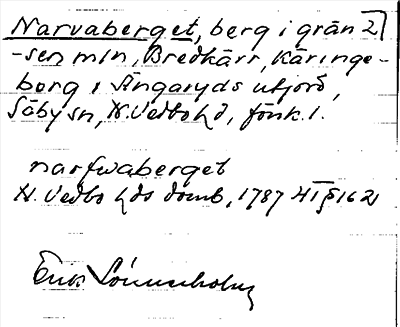 Narvaberget, berg i grän 2
-sen mln, Bredkärr, Käringe-
berg i Ängaryds utjord,
Säby sn, N. Vedbo hd, Jönk. l.
narfwaberget
N. Vedbo hds domb, 1787 HT § 162
Erik